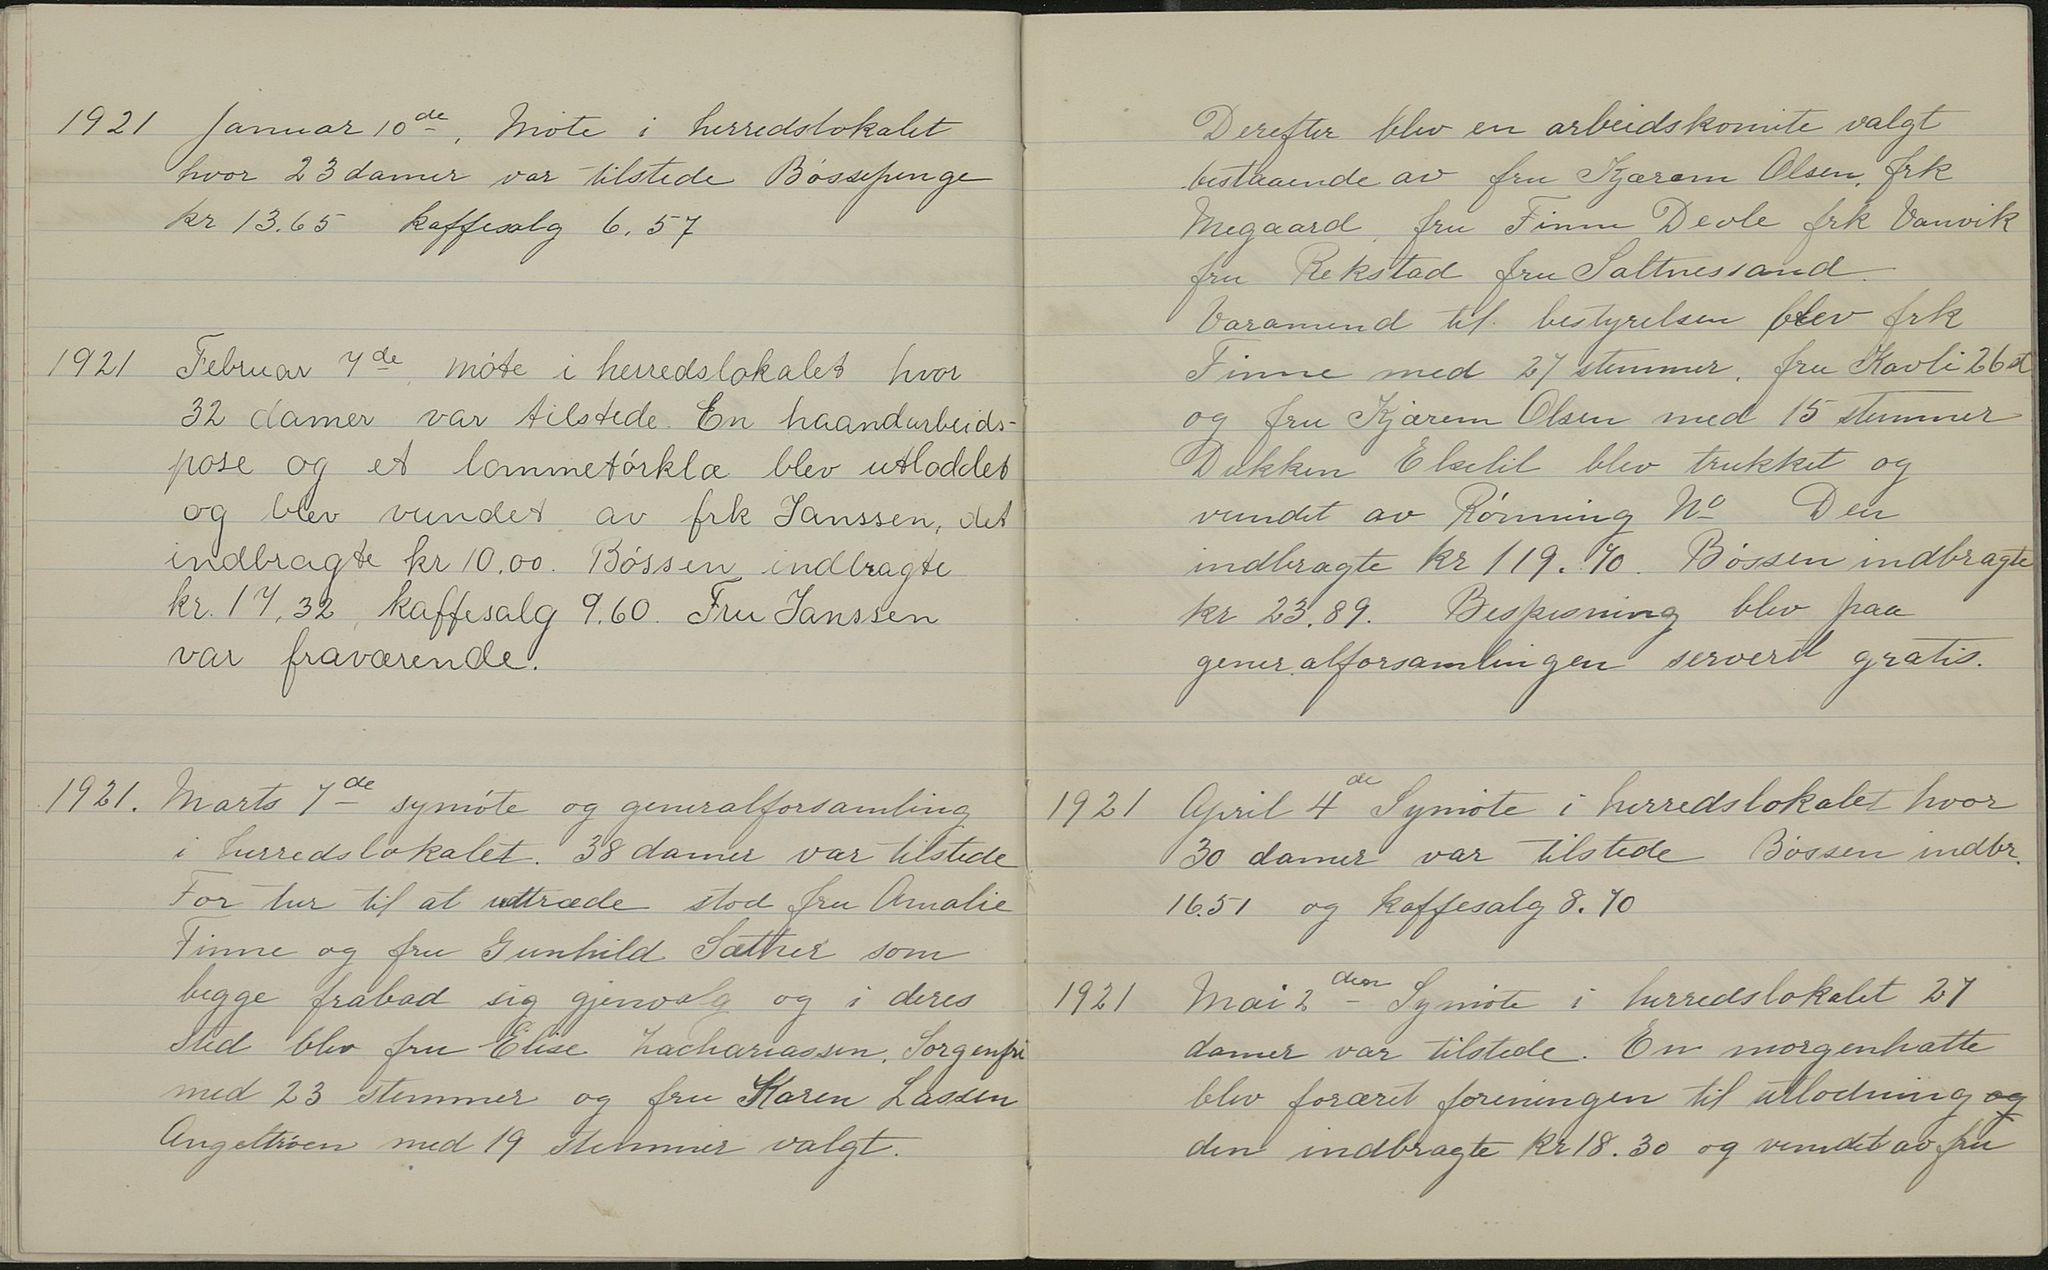 1921 Januar 10de, Møte i herredslokalet
hvor 23 damer var tilstede Bøssepenge
kr 13.65 kaffesalg 6.57
1921 Februar 7de, møte i herredslokalet hvor
32 damer var tilstede. En haandarbeids-
pose og et lommetørklæ blev utloddet
og blev vundet av frk Janssen, det
indbragte kr 10.00. Bøssen indbragte
kr. 17,32, kaffesalg 9.60. Fru Janssen
var fraværende.
1921. Marts 7de symøte og generalforsamling
i herredslokalet. 38 damer var tilstede
For tur til at uttræde stod fru Amalie
Finne og fru Gunhild Sæther som
begge frabad sig gjenvalg og i deres
sted blev fru Elise Zachariassen, Sorgenfri
med 23 stemmer og fru Karen Lassen
Angeltrøen med 19 stemmer valgt.
Derefter blev en arbeidskomite valgt
bestaaende av fru Kjærem Olsen, frk
Megaard, fru Finne Devle frk Vanvik
fru Rekstad fru Saltnessand
Varamend til bestyrelsen blev frk
Finne med 27 stemmer, fru Kavli 26 st
og fru Kjærem Olsen med 15 stemmer
Dukken Elselil blev trukket og
vundet av Rønning No Den
indbragte kr 119.70. Bøssen indbragte
kr 23.89. Bespisning blev paa
generalforsamlingen servert gratis.
1921 April 4de Symøte i herredslokalet hvor
30 damer var tilstede Bøssen indbr.
16.51 og kaffesalg 8.70
1921 Mai 2den Symøte i herredslokalet 27
damer var tilstede. En morgenhatte
blev foræret foreningen til utlodning og
den indbragte kr 18.30 og vundet av fru